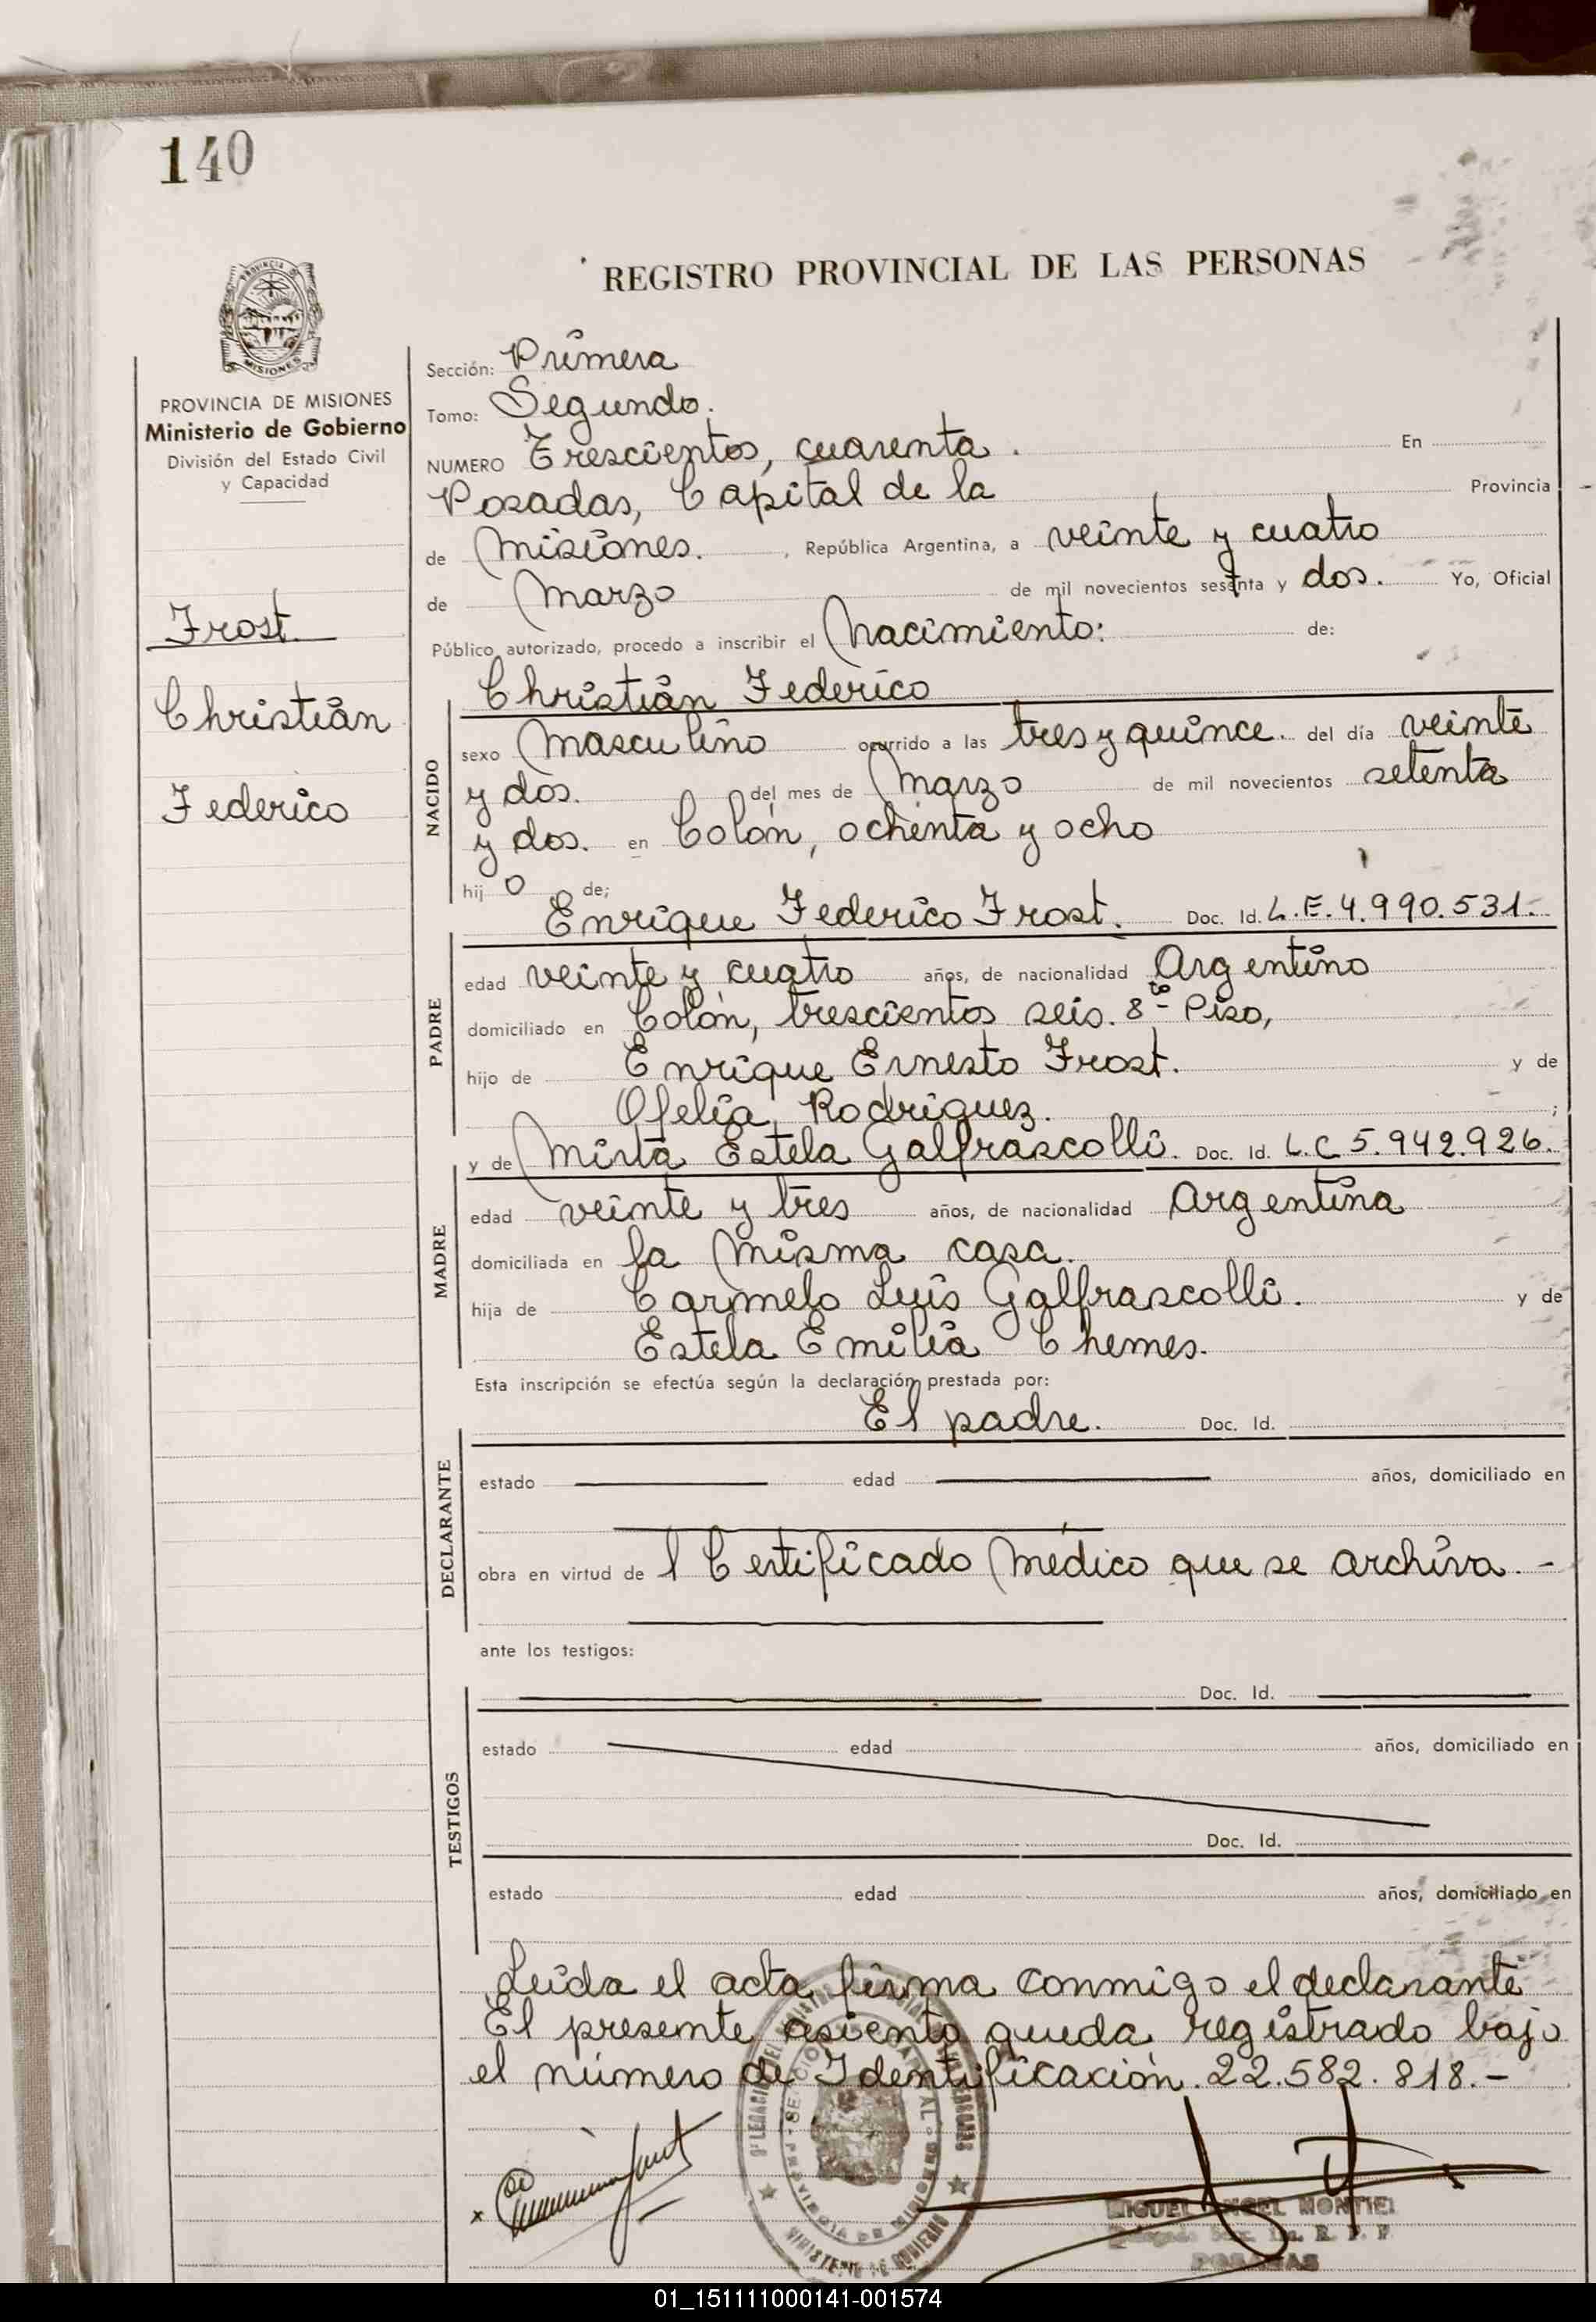 140
REGISTRO PROVINCIAL DE LAS PERSONAS
MISIONES
PROVINCIA DE MISIONES
Ministerio de Gobierno
División del Estado Civil
y Capacidad
Frost
Christián
Federico
Sección: Primera
Tomo: Segundo.
NUMERO Trescientos, cuarenta. En
Posadas, Capital de la Provincia
de Misiones. , República Argentina, a veinte y cuatro
de Marzo de mil novecientos sesenta y dos. Yo, Oficial
Público autorizado, procedo a inscribir el Nacimiento: de:
Christián Federico
NACIDO
sexo Masculino ocurrido a las tres y quince. del día veinte
y dos. del mes de Marzo de mil novecientos setenta
y dos. en Colón, ochenta y ocho
hij o de;
Enrique Federico Frost. Doc. Id. L.E. 4.990.531.
PADRE
edad veinte y cuatro años, de nacionalidad Argentino
domiciliado en Colón, trescientos seis. 8to Piso,
hijo de Enrique Ernesto Frost. y de
Ofelia Rodriguez. ;
y de Mirta Estela Galfrascolli. Doc. Id. L.C 5.942.926.
MADRE
edad veinte y tres años, de nacionalidad Argentina
domiciliada en la Misma casa.
hija de Carmelo Luis Galfrascolli. y de
Estela Emilia Chemes.
Esta inscripción se efectúa según la declaración prestada por:
El padre. Doc. Id.
DECLARANTE
estado edad años, domiciliado en
obra en virtud de l Certificado Médico que se archiva. -
ante los testigos:
Doc. Id.
TESTIGOS
estado edad años, domiciliado en
Doc. Id.
estado edad años, domiciliado en
Leída el acta firma conmigo el declarante
El presente asiento queda registrado bajo
el número de Identificación. 22.582.818.-
MIGUEL ANGEL MONTIEL
POSADAS
01_151111000141-001574